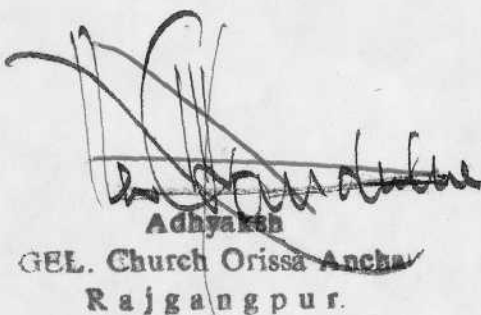 Adhyaksh
GEL. Church Orissa Ancha
Rajgangpur.